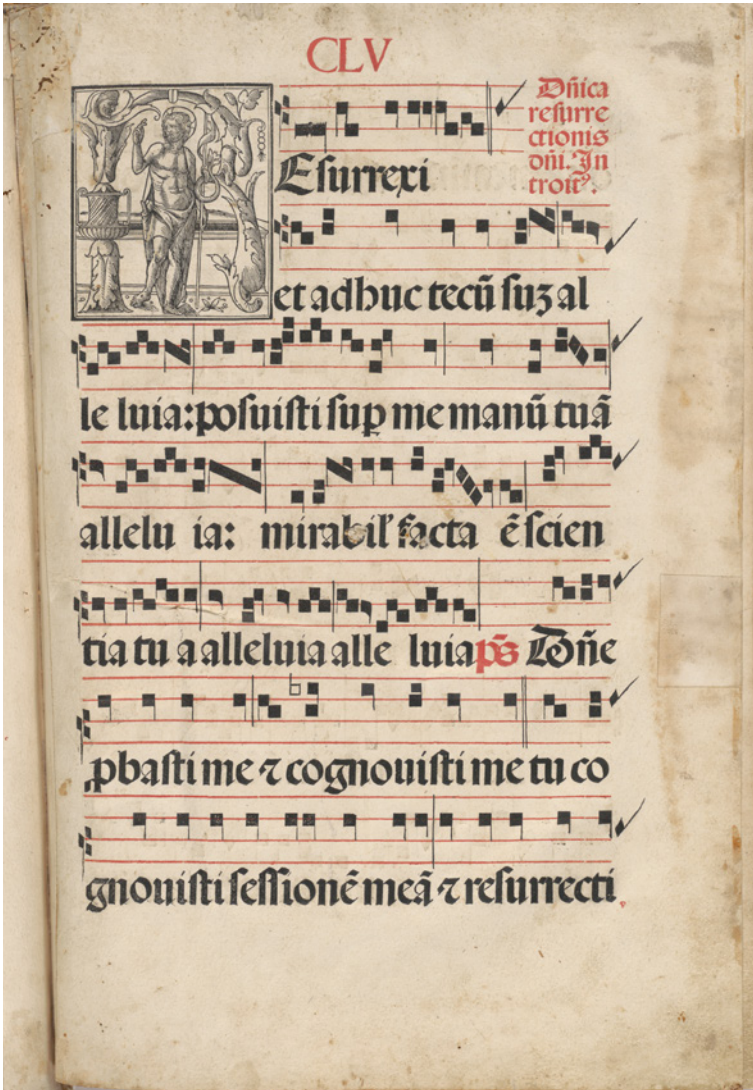 CLV
Dñica
resurre
ctionis
dñi. In
troitꝰ.
Esurrexi
et adhuc tecū suꝫ al
le luia: posuisti suꝑ me manū tuā
allelu ia: mirabilʼ facta ē scien
tia tu a alleluia alle luia p̄s Dōñe
ꝓbasti me ⁊ cognouisti me tu co
gnouisti sessionē meā ⁊ resurrecti